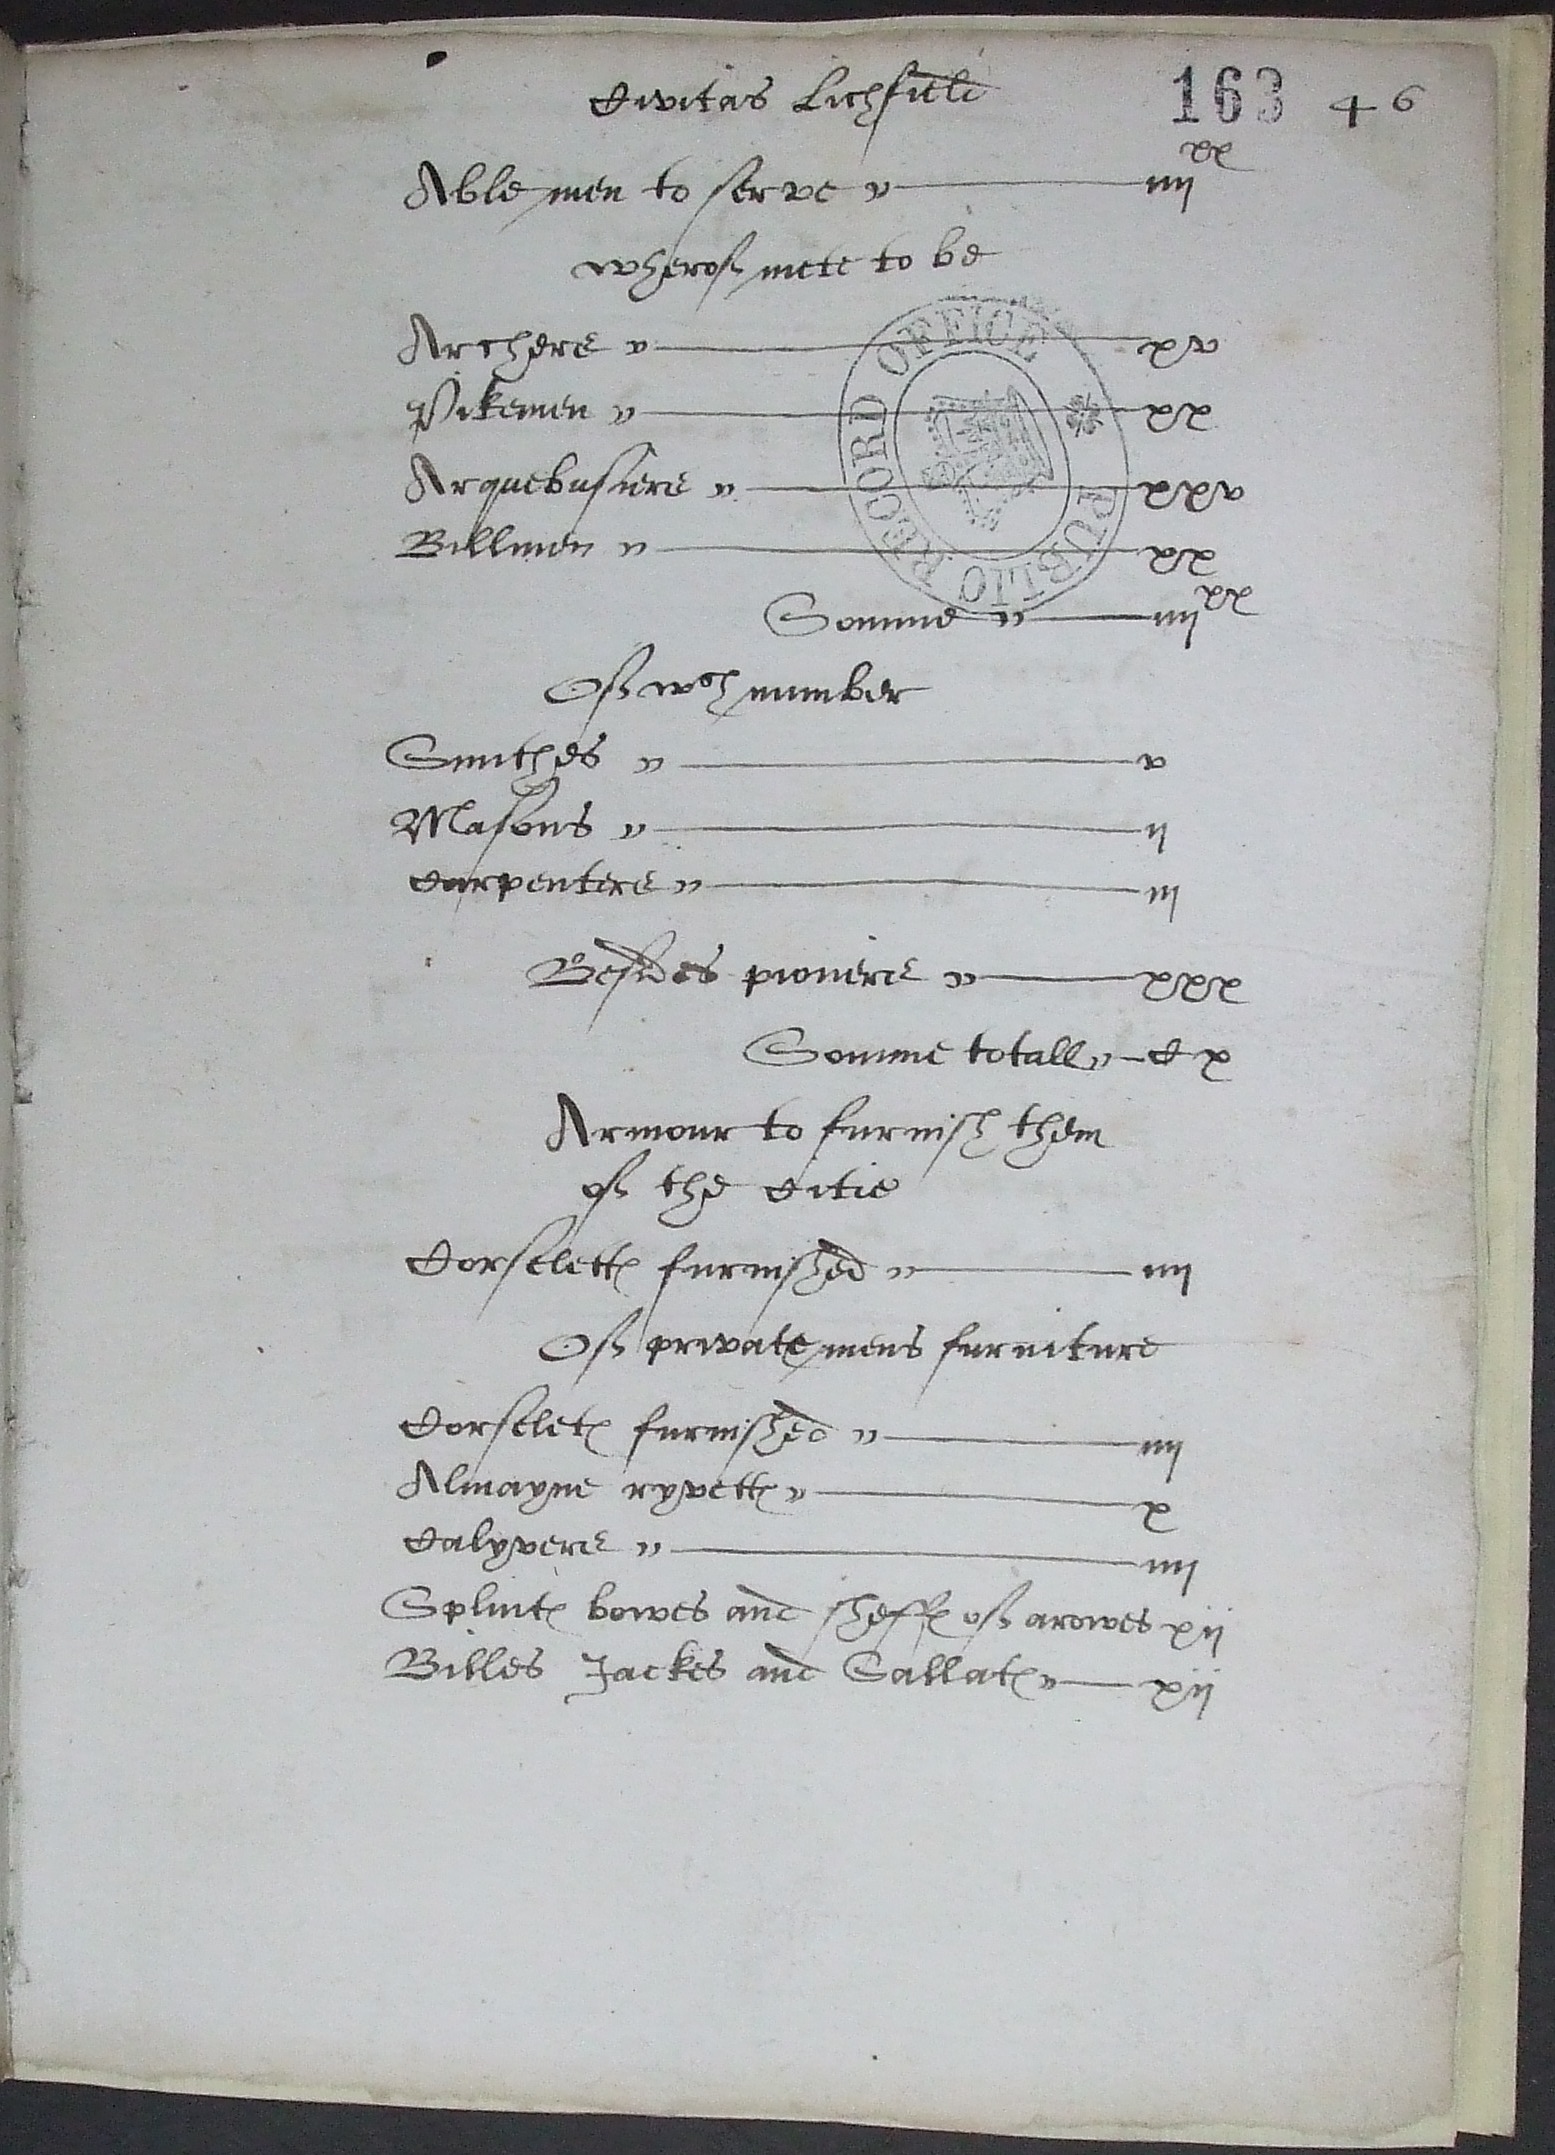 Civitas Lichfield
163 46
Able men to serve iiij xx
wherof mete to be
Archers xv
Pikemen xx
Arquebusiers xxv
Billmen xx
Somme iiij xx
Of wch number
Smithes v
Masons ij
Carpenters iij
Besides pioners xxx
Somme totall C x
Armour to furnish them
of the Citie
Corsletts furnished iiij
Of private mens furniture
Corslets furnished iiij
Almayne ryvetts x
Calyvers iiij
Splints bowes and sheffs of arowes xij
Billes Jackes and Sallats xij
PUBLIC RECORD OFFICE